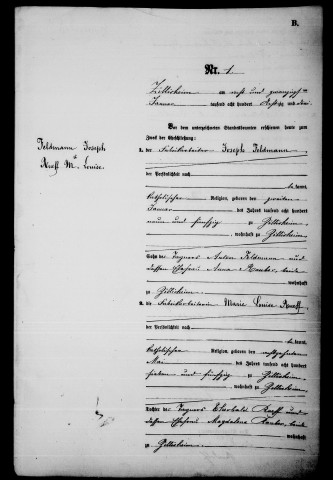 B.
Nr. 1.
Zillisheim am
Januar tausend acht hundert
Vor dem unterzeichneten Standesbeamten erschienen heute zum
Zweck der Eheschließung:
Feldmann Joseph
&
M. Louise.
1. der Fabrikarbeiter Joseph Feldmann
der Persönlichkeit nach
kannt,
katholischer Religion, geboren den zweiten
Januar des Jahres tausend acht hundert
neun und fünfzig zu Zillisheim
, wohnhaft zu Zillisheim
Sohn des Tagners Anton Feldmann und
dessen Ehefrau Anna
wohnhaft
zu Zillisheim
2. die Fabrikarbeiterin Marie Louise
der Persönlichkeit nach
kannt,
katholischer Religion, geboren den
Mai des Jahres tausend acht hundert
sieben und fünfzig zu Zillisheim
, wohnhaft zu Zillisheim
Tochter des Tagners und
dessen Ehefrau Magdalena
wohnhaft
zu Zillisheim